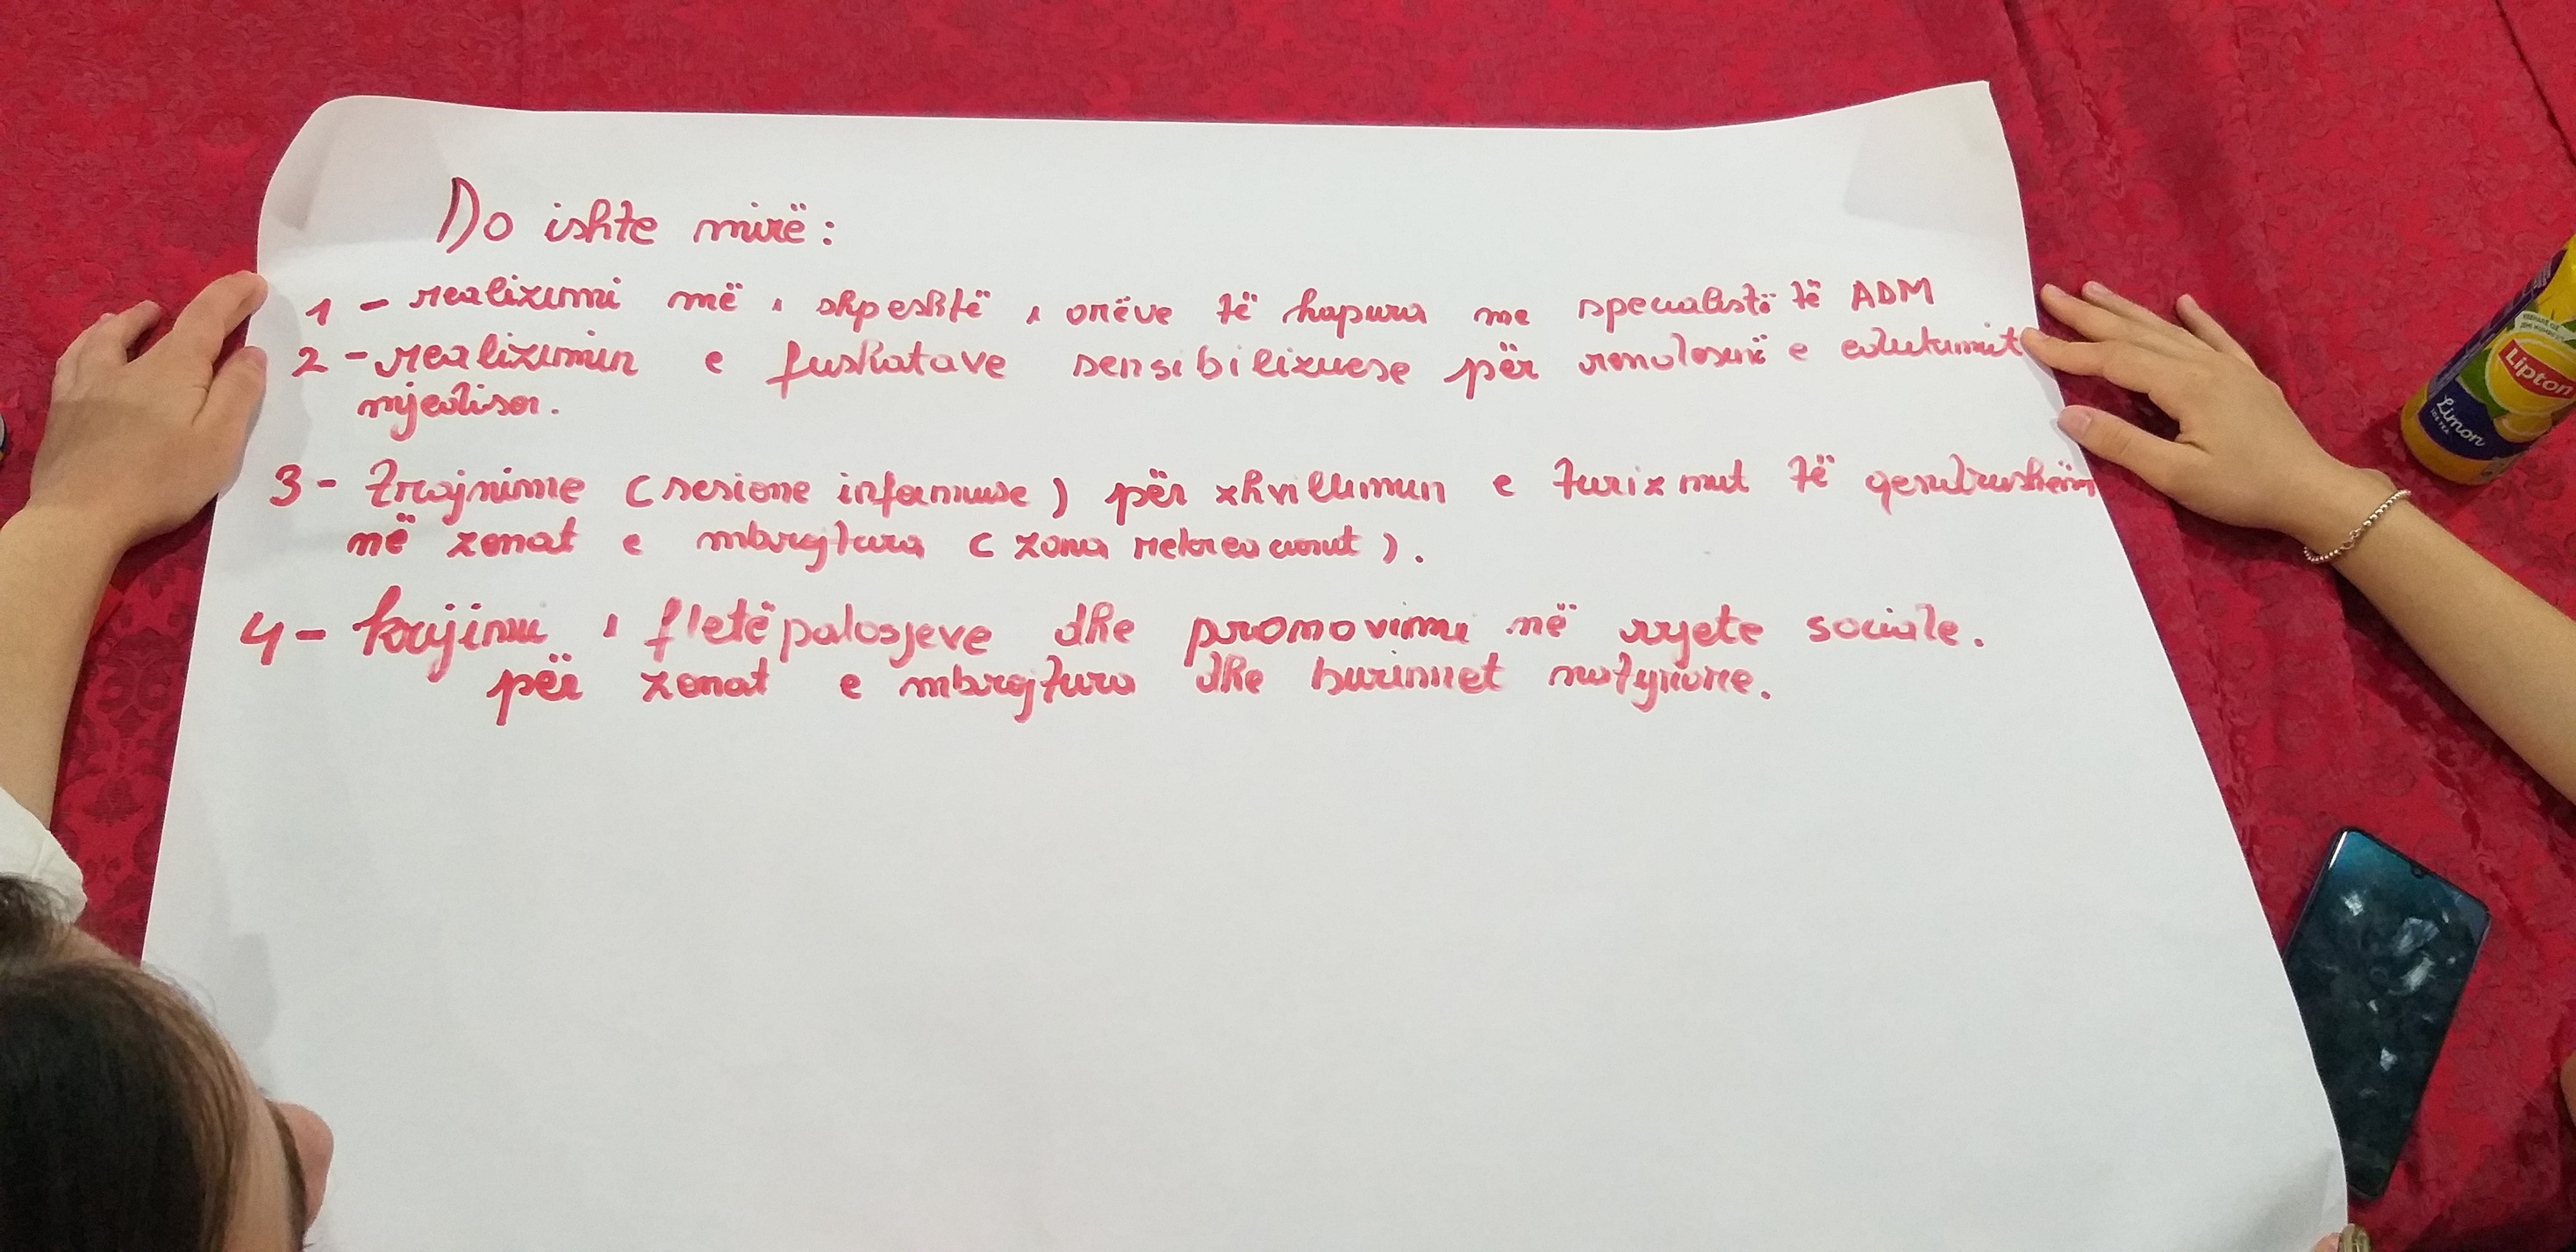 Do ishte mirë:
1 - realizimi më i shpeshtë i orëve të hapura me specialistë të ADM
2 - realizimin e fushatave sensibilizuese për rëndësinë e edukimit
mjedisor.
3 - Trajnime (sesione informuese) për zhvillimin e turizmit të qendrueshëm
në zonat e mbrojtura (zona rekreacionit).
4 - krijimi i fletëpalosjeve dhe promovimi në rrjete sociale.
për zonat e mbrojtura dhe burimet natyrore.
Lipton
Limon
ICE TEA